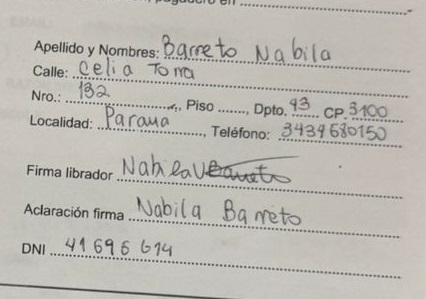 Apellido y Nombres: Barreto Nabila
Calle: Celia Torra
Nro.: 132, Piso ......., Dpto. 93 CP. 3100
Localidad: Parana, Teléfono: 3434680150
Firma librador
Aclaración firma Nabila Barreto
DNI 41 696 614